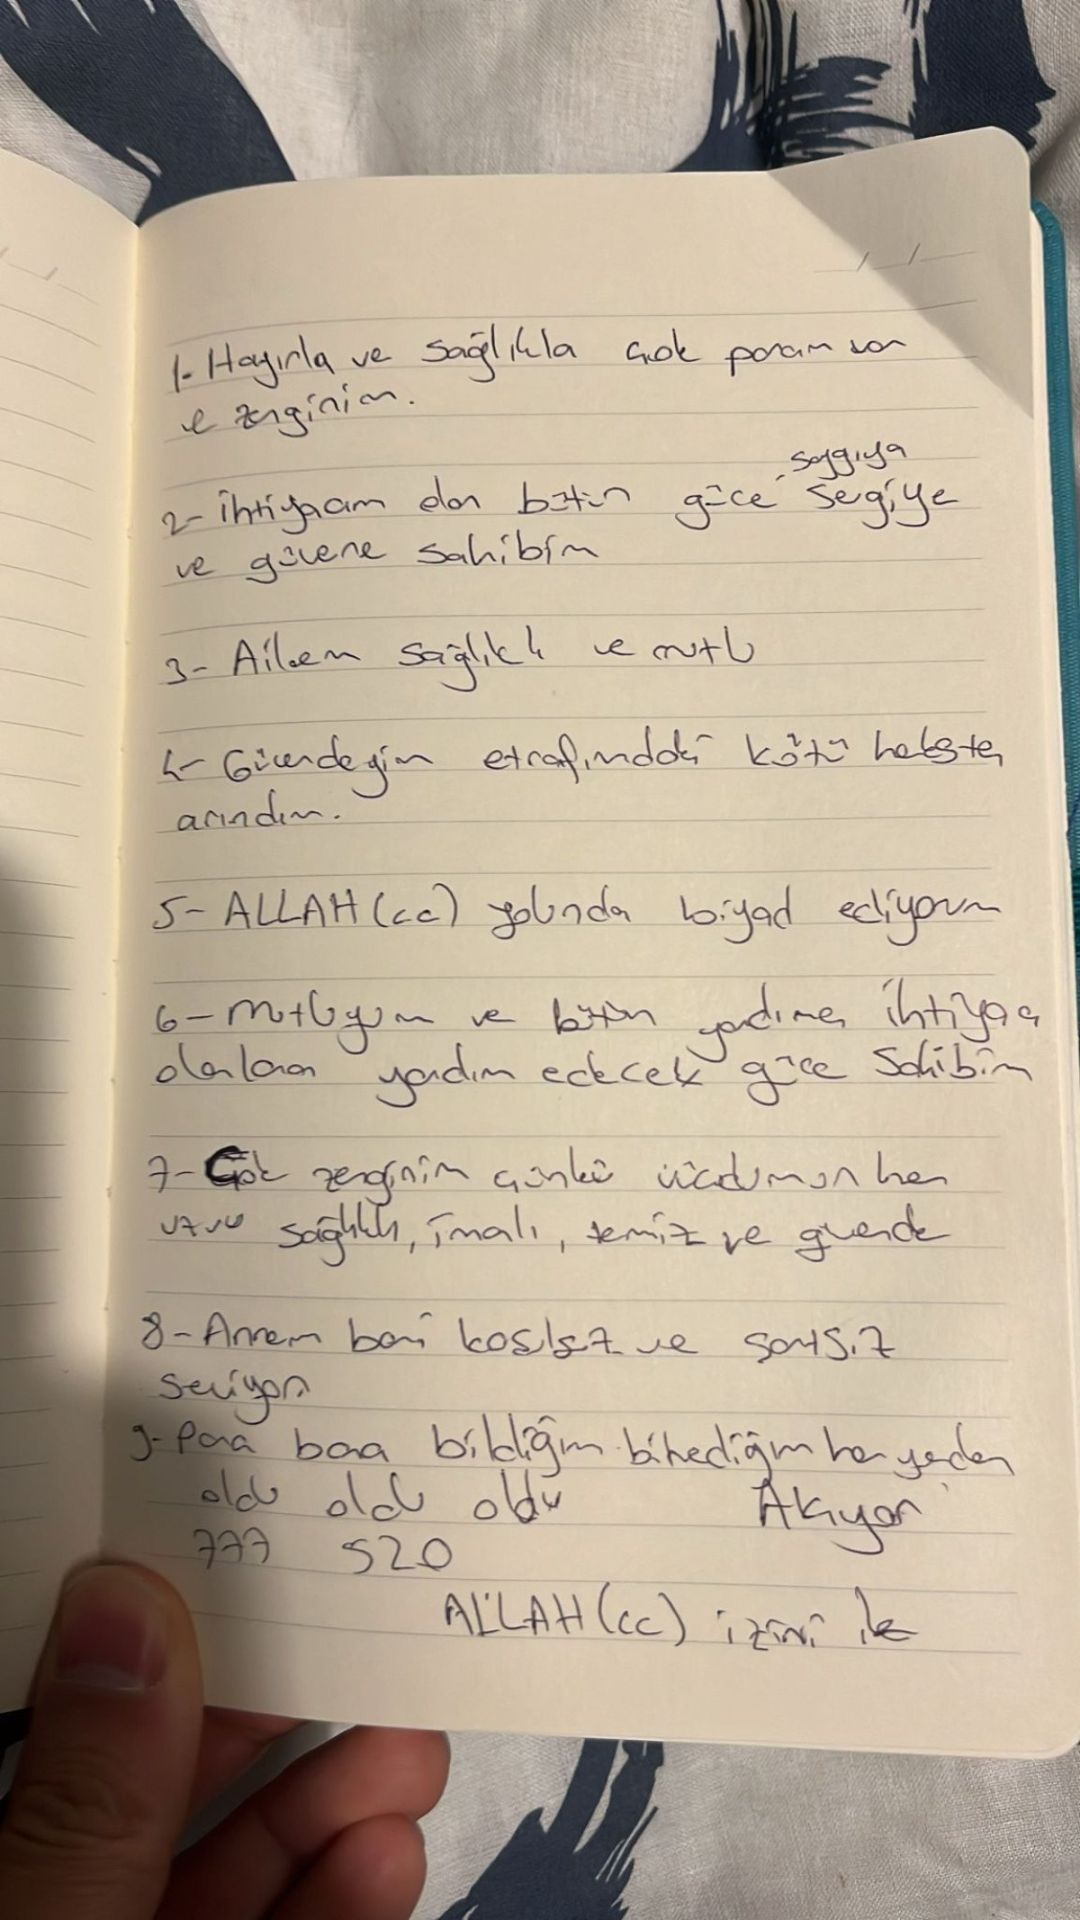 1- Hayırla ve sağlıkla çok param var
ve zenginim.
saygıya
2- ihtiyacım olan bütün güce sevgiye
ve güvene sahibim
3- Ailem sağlıklı ve mutlu
4- Güvendeyim etrafımdaki kötü
arındım.
5- ALLAH (cc) yolunda ediyorum
6- mutluyum ve bütün yardıma ihtiyacı
olanlara yardım edecek güce sahibim
7- Çok zenginim çünkü vücudumun her
uzvu sağlıklı, temiz ve güvende
8- Annem beni koşulsuz ve şartsız
seviyor
9- Para bana bildiğim bilmediğim her yerden
oldu oldu oldu Akıyor
777 520
ALLAH (cc) izini ile